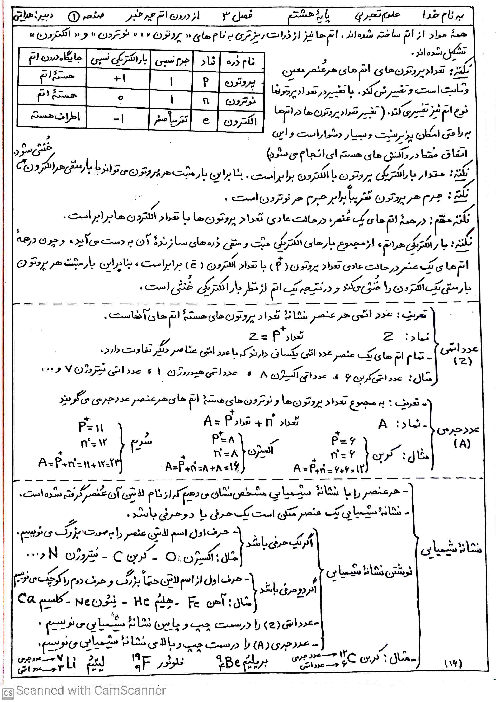 به نام خدا علوم تجربی پایهٔ هشتم فصل ۳ از درون اتم چه خبر صفحه ۱ دبیر: هدائی
همهٔ مواد از اتم ساخته شده‌اند. اتم‌ها نیز از ذرات ریزتری به نام‌های «پروتون»، «نوترون» و «الکترون»
تشکیل شده‌اند.
نام ذره نماد جرم نسبی بار الکتریکی نسبی جایگاه درون اتم
پروتون P 1 +1 هستهٔ اتم
نوترون n 1 0 هستهٔ اتم
الکترون e تقریباً صفر -1 اطراف هسته
نکته: تعداد پروتون‌های اتم‌های هر عنصر معین
و ثابت است و تغییر نمی‌کند. با تغییر در تعداد پروتون‌ها
نوع اتم نیز تغییر می‌کند. (تغییر تعداد پروتون‌ها در اتم‌ها
به راحتی امکان پذیر نیست و بسیار دشوار است و این
اتفاق فقط در واکنش‌های هسته ای انجام می‌شود)
نکته: مقدار بار الکتریکی پروتون با الکترون برابر است. بنابراین بار مثبت هر پروتون می‌تواند با بار منفی هر الکترون خنثی شود
نکته: جرم هر پروتون تقریباً برابر جرم هر نوترون است.
نکتهٔ مهم: در همهٔ اتم‌های یک عنصر، در حالت عادی تعداد پروتون‌ها با تعداد الکترون‌ها برابر است.
نکته: بار الکتریکی هر اتم، از مجموع بارهای الکتریکی مثبت و منفی ذره‌های سازندهٔ آن به دست می‌آید. و چون در همهٔ
اتم‌های یک عنصر در حالت عادی تعداد پروتون (P⁺) با تعداد الکترون (e⁻) برابر است، بنابراین بار مثبت هر پروتون
بار منفی یک الکترون را خنثی می‌کند و در نتیجه یک اتم از نظر بار الکتریکی خنثی است.
عدد اتمی (Z)
تعریف: عدد اتمی هر عنصر نشانهٔ تعداد پروتون‌های هستهٔ اتم‌های آنهاست.
نماد: Z Z = P⁺ تعداد
- تمام اتم‌های یک عنصر عدد اتمی یکسانی دارند که با عدد اتمی عناصر دیگر تفاوت دارد.
- مثال: عدد اتمی کربن ۶ و عدد اتمی اکسیژن ۸ و عدد اتمی هیدروژن ۱ و عدد اتمی نیتروژن ۷ و ...
عدد جرمی (A)
- تعریف: به مجموع تعداد پروتون‌ها و نوترون‌های هستهٔ اتم‌های هر عنصر عدد جرمی می‌گویند
- نماد: A A = P⁺ تعداد + n° تعداد
- مثال: کربن P⁺=۶ n°=۶ A=P⁺+n°=۶+۶=۱۲
اکسیژن P⁺=۸ n°=۸ A=P⁺+n°=۸+۸=۱۶
سدیم P⁺=۱۱ n°=۱۲ A=P⁺+n°=۱۱+۱۲=۲۳
نشانهٔ شیمیایی
- هر عنصر را با نشانهٔ شیمیایی مشخص نشان می‌دهیم که از نام لاتین آن عنصر گرفته شده است.
- نشانهٔ شیمیایی یک عنصر ممکن است یک حرفی یا دو حرفی باشد.
نوشتن نشانهٔ شیمیایی
اگر یک حرفی باشد - حرف اول اسم لاتین عنصر را به صورت بزرگ می‌نویسیم.
مثال: اکسیژن O - کربن C - نیتروژن N و ...
اگر دو حرفی باشد - حرف اول از اسم لاتین حتماً بزرگ و حرف دوم را کوچک می‌نویسیم
مثال: آهن Fe - هلیم He - نئون Ne - کلسیم Ca
- عدد اتمی (Z) را در سمت چپ و پایین نشانهٔ شیمیایی می‌نویسیم.
- عدد جرمی (A) را در سمت چپ و بالای نشانهٔ شیمیایی می‌نویسیم.
- مثال: کربن C ۱۲ عدد جرمی ۶ عدد اتمی بریلیم ⁹₄Be فلوئور ¹⁹₉F لیتیم Li ۷ عدد جرمی ۳ عدد اتمی
CS Scanned with CamScanner